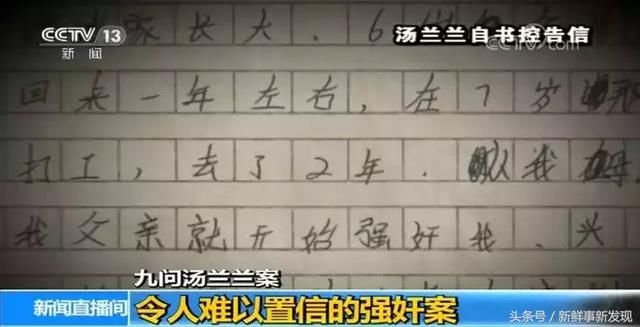 CCTV 13
新闻
汤兰兰自书控告信
央视网
cctv.com
家长大,6
回来一年左右,在7岁
打工,去了2年.以我
我父亲就开始强奸我、兴
九问汤兰兰案
新闻直播间
令人难以置信的强奸案
头条号/新鲜事新发现